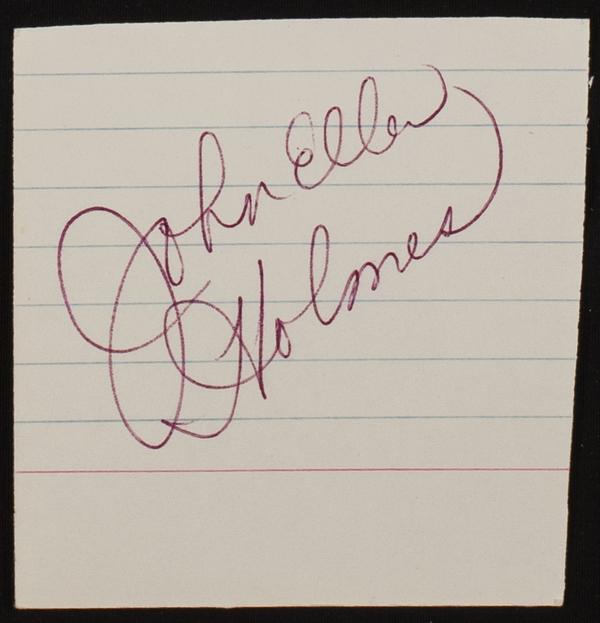 John Ellen
Holmes